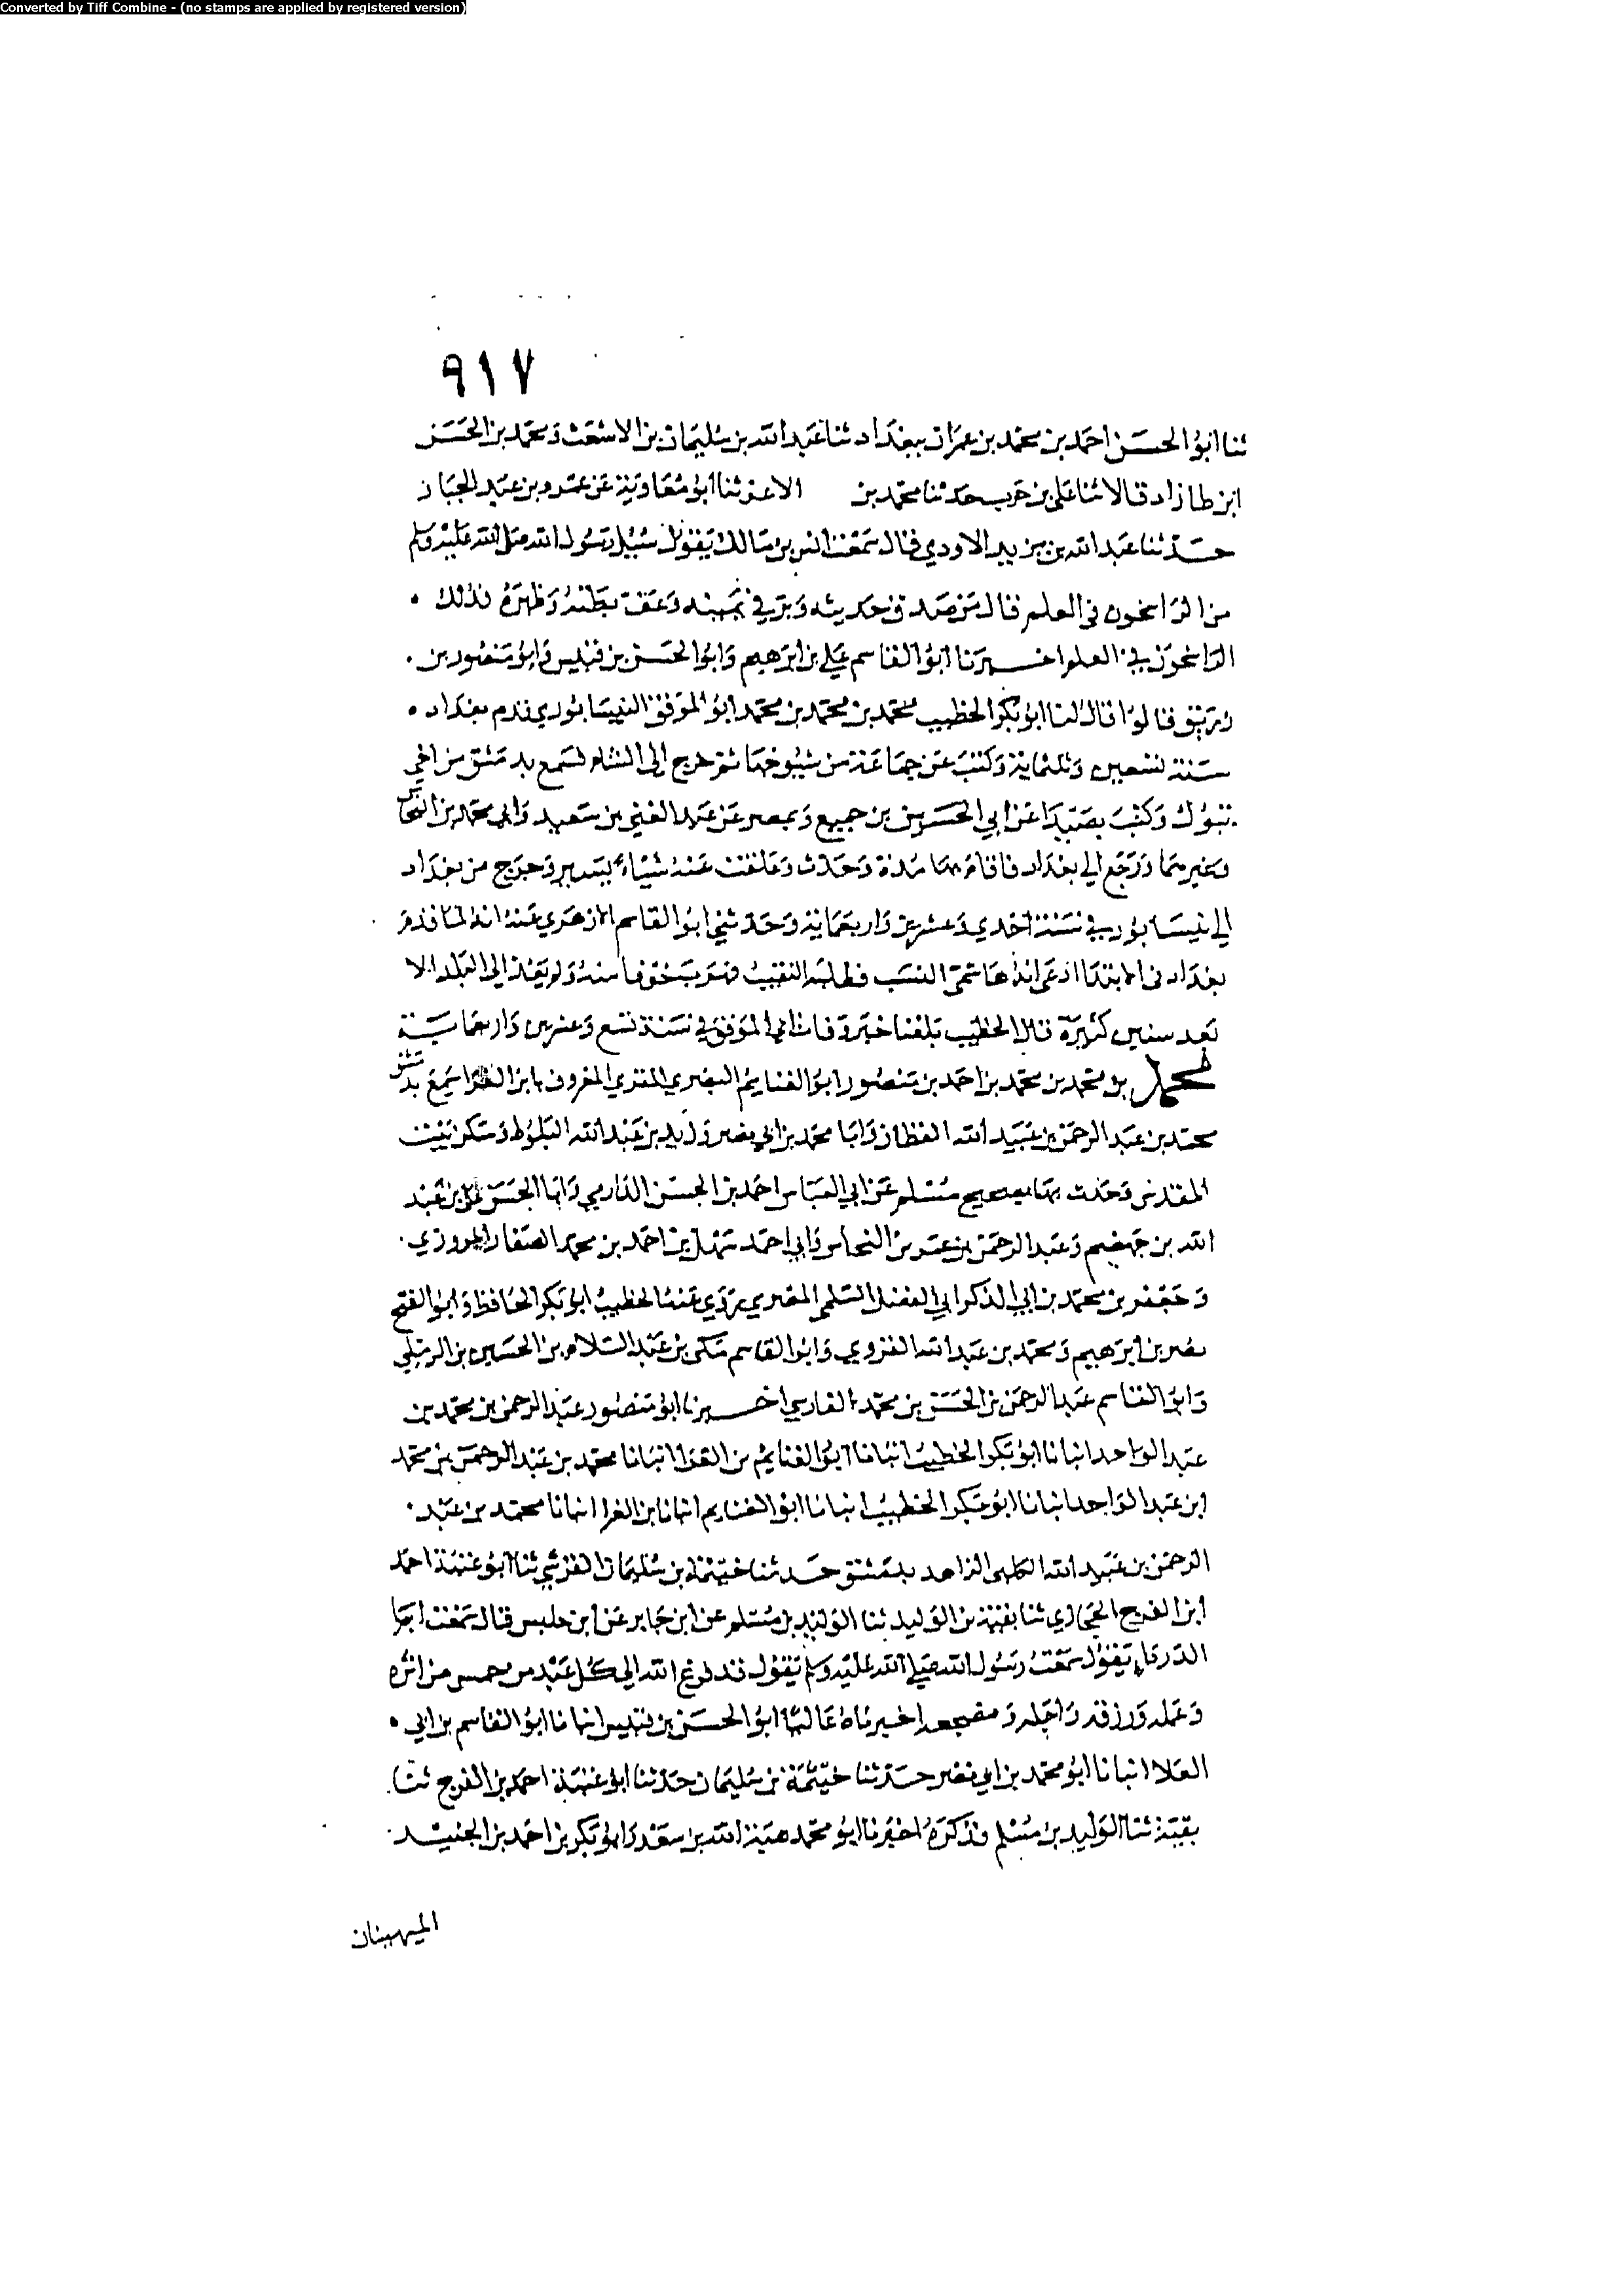 Converted by Tiff Combine - (no stamps are applied by registered version)
٩١٧
ثنا ابو الحسن احمد بن محمد بن عمران ببغداد ثنا عبد الله بن سليمان بن الاشعث ومحمد بن الحسن
ابن طازاد قالا ثنا علي بن حرب حدثنا محمد بن الاعز ثنا ابو معاوية عن عمرو بن عبد الجبار
حدثنا عبد الله بن يزيد الاودي قال سمعت انس بن مالك يقول سئل رسول الله صلى الله عليه وسلم
من الراسخون في العلم قال من صدق حديثه وبر في يمينه وعف بطنه وظهره فذلك
الراسخون في العلم اخبرنا ابو القاسم علي بن ابرهيم وابو الحسن بن قبيس وابو منصور بن
زريق قالوا قال لنا ابو بكر الخطيب محمد بن محمد بن محمد ابو الموفق النيسابوري قدم بغداد
سنة تسعين وثلثماية وكتب عن جماعة من شيوخها ثم خرج الى الشام فسمع بدمشق من اخي
تبوك وكتب بصيدا عن ابي الحسين بن جميع وبمصر عن عبد الغني بن سعيد وابي محمد بن النحاس
وغيرهما ورجع الي بغداد فاقام بها مدة وحدث وعلقت عنه شياء يسير وخرج من بغداد
الي نيسابور في سنة احدي وعشرين واربعماية وحدثني ابو القاسم الازهري عنه انه لما قدم
بغداد في الابتدا ادعى انه هاشمي النسب فطلبه النقيب فهرب خوفا منه ولم يعد الى البلد الا
بعد سنين كثيرة قال الخطيب بلغنا خبر وفاة ابي الموفق في سنة تسع وعشرين واربعماية
محمد بن محمد بن محمد بن احمد بن منصور ابو الغنايم البصري المقري المعروف بابن الغرا سمع بدمشق
محمد بن عبد الرحمن بن عبيد الله القطان وابا محمد بن ابي نصر وزيد بن عبد الله البلوط وسكن بيت
المقدس وحدث بها بصحيح مسلم عن ابي العباس احمد بن الحسن الدازمي وابا الحسن علي بن عبد
الله بن جهضم وعبد الرحمن بن عمر بن النحاس وابي احمد سهل بن احمد بن محمد الصفار المروزي
وجعفر بن محمد بن ابي الذكر ابي الفضل السلمي المقري روي عنه الخطيب ابو بكر الحافظ وابو الفتح
نصر بن ابرهيم ومحمد بن عبد الله الغزوي وابو القاسم مكى بن عبد السلام بن الحسين بن الرميلي
وابو القاسم عبد الرحمن بن الحسن بن محمد الفارسي اخبرنا ابو منصور عبد الرحمن بن محمد بن
عبد الواحد انبانا ابو بكر الخطيب انبانا ابو الغنايم بن الغرا انبانا محمد بن عبد الرحمن بن محمد
ابن عبد الواحد انبانا ابو بكر الخطيب انبانا ابو الغنايم انبانا بن الغرا انبانا محمد بن عبد
الرحمن بن عبيد الله الزاهد بدمشق حدثنا خيثمة بن سليمان القرشي ثنا ابو عتبة احمد
ابن الفرج الحجازي ثنا بقية بن الوليد ثنا الوليد بن مسلم عن ابن جابر عن ابن حلبس قال سمعت ابا
الدرداء يقول سمعت رسول الله صلى الله عليه وسلم يقول قد فرغ الله الى كل عبد من خمس من اثره
وعمله ورزقه واجله ومضجعه اخبرناه عاليا ابو الحسن بن قبيس انبانا ابو القاسم بن ابي
العلا انبانا ابو محمد بن ابي نصر حدثنا خيثمة بن سليمان حدثنا ابو عتبة احمد بن الفرج ثنا
بقية ثنا الوليد بن مسلم فذكره اخبرنا ابو محمد هبة الله بن سعد وابو بكر بن احمد بن الجنيد
الميهنيان